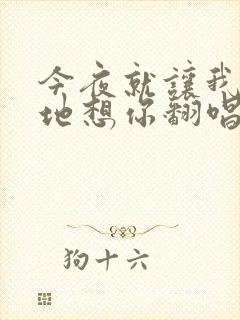 今夜就讓我
地想你翻唱
狗十六